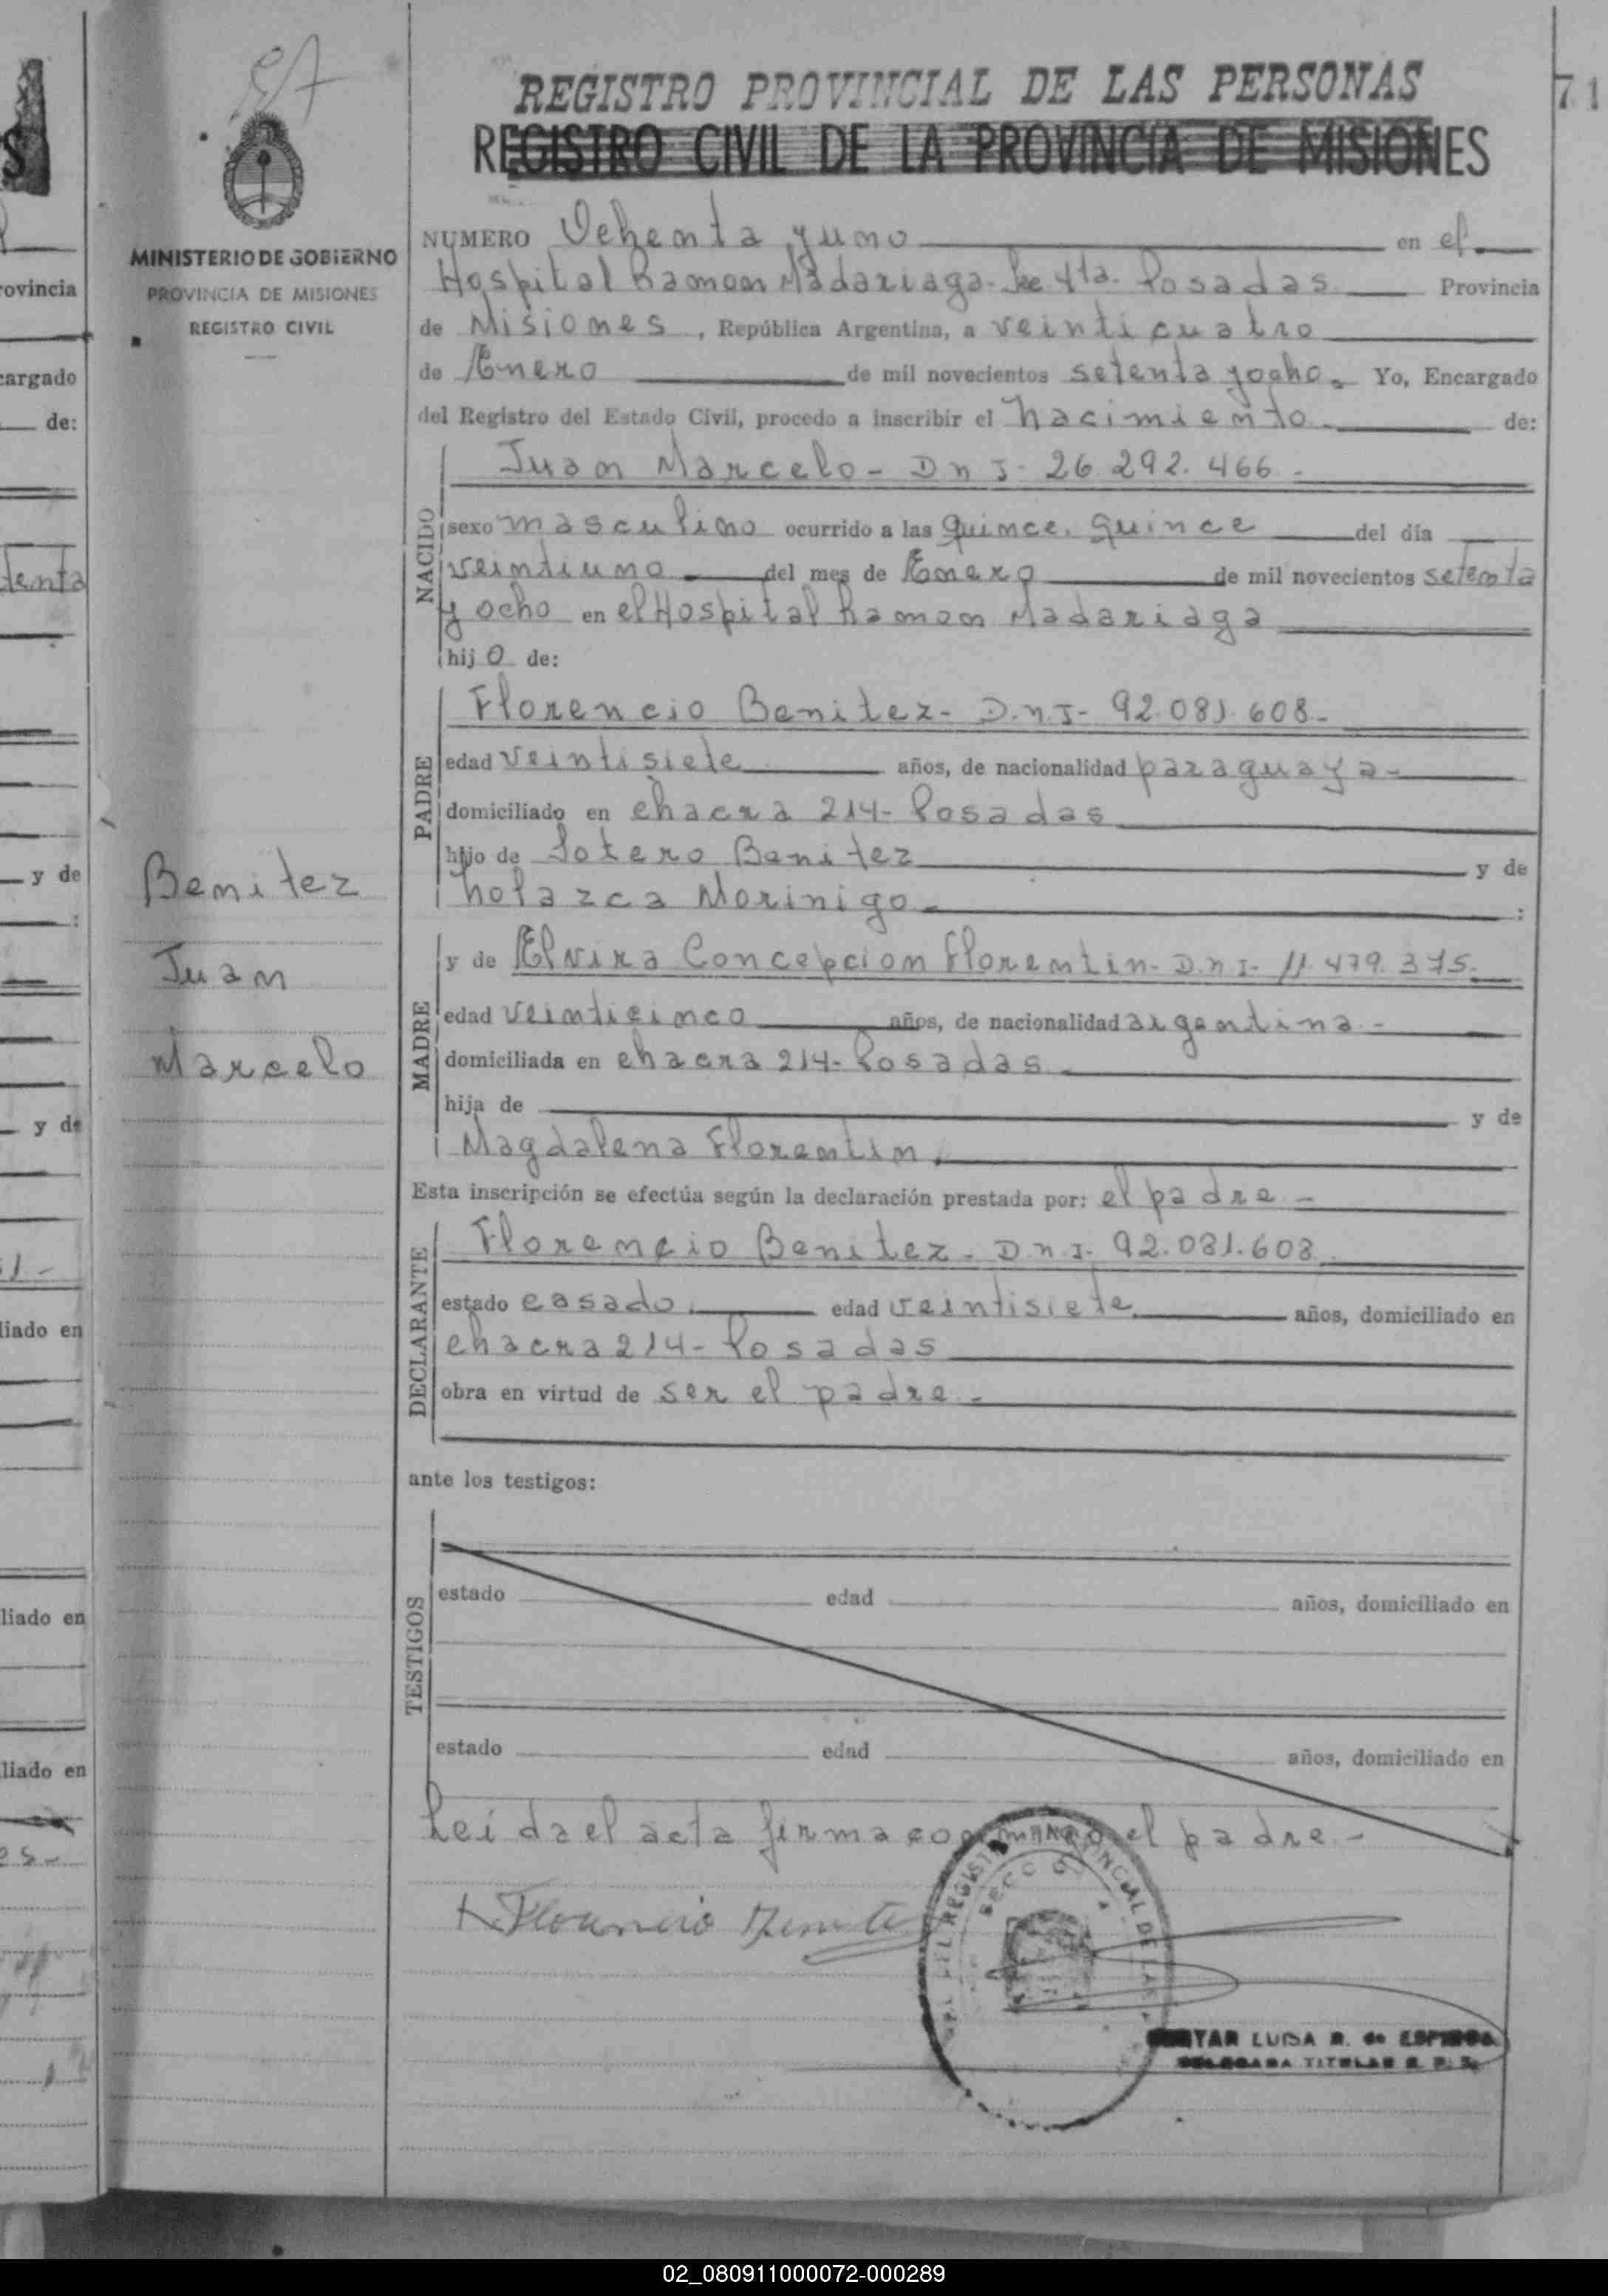 71
REGISTRO PROVINCIAL DE LAS PERSONAS
REGISTRO CIVIL DE LA PROVINCIA DE MISIONES
MINISTERIO DE GOBIERNO
PROVINCIA DE MISIONES
REGISTRO CIVIL
NUMERO Ochenta y uno en el
Hospital Ramon Madariaga - Sec 4ta. Posadas Provincia
de Misiones, República Argentina, a veinticuatro
de Enero de mil novecientos setenta y ocho. Yo, Encargado
del Registro del Estado Civil, procedo a inscribir el nacimiento de:
NACIDO
Juan Marcelo - D n I - 26.292.466 -
sexo masculino ocurrido a las quince. quince del día
veintiuno del mes de Enero de mil novecientos setenta
y ocho en el Hospital Ramon Madariaga
hij o de:
PADRE
Florencio Benitez - D.n.I - 92.081.608 -
edad veintisiete años, de nacionalidad paraguaya -
domiciliado en chacra 214 - Posadas
hijo de Sotero Benitez y de
Nolazca Morinigo :
Benitez
Juan
Marcelo
MADRE
y de Elvira Concepcion Florentin - D.n.I - 11.479.375.
edad veinticinco años, de nacionalidad argentina -
domiciliada en chacra 214 - Posadas
hija de y de
Magdalena Florentin.
Esta inscripción se efectúa según la declaración prestada por: el padre -
DECLARANTE
Florencio Benitez - D.n.I - 92.081.608
estado casado. edad veintisiete años, domiciliado en
chacra 214 - Posadas
obra en virtud de ser el padre -
ante los testigos:
TESTIGOS
estado edad años, domiciliado en
estado edad años, domiciliado en
Leida el acta firma conmigo el padre -
Florencio Benitez
LUISA R. de ESPINOSA
DELEGADA TITULAR R. P. P.
02_080911000072-000289